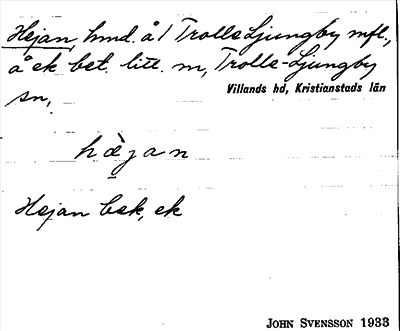 Hejan, hmd. å 1 Trolle Ljungby mfl.,
å ek bet. litt. m, Trolle-Ljungby
sn,
Villands hd, Kristianstads län
hæjan
Hejan bek, ek
JOHN SVENSSON 1933